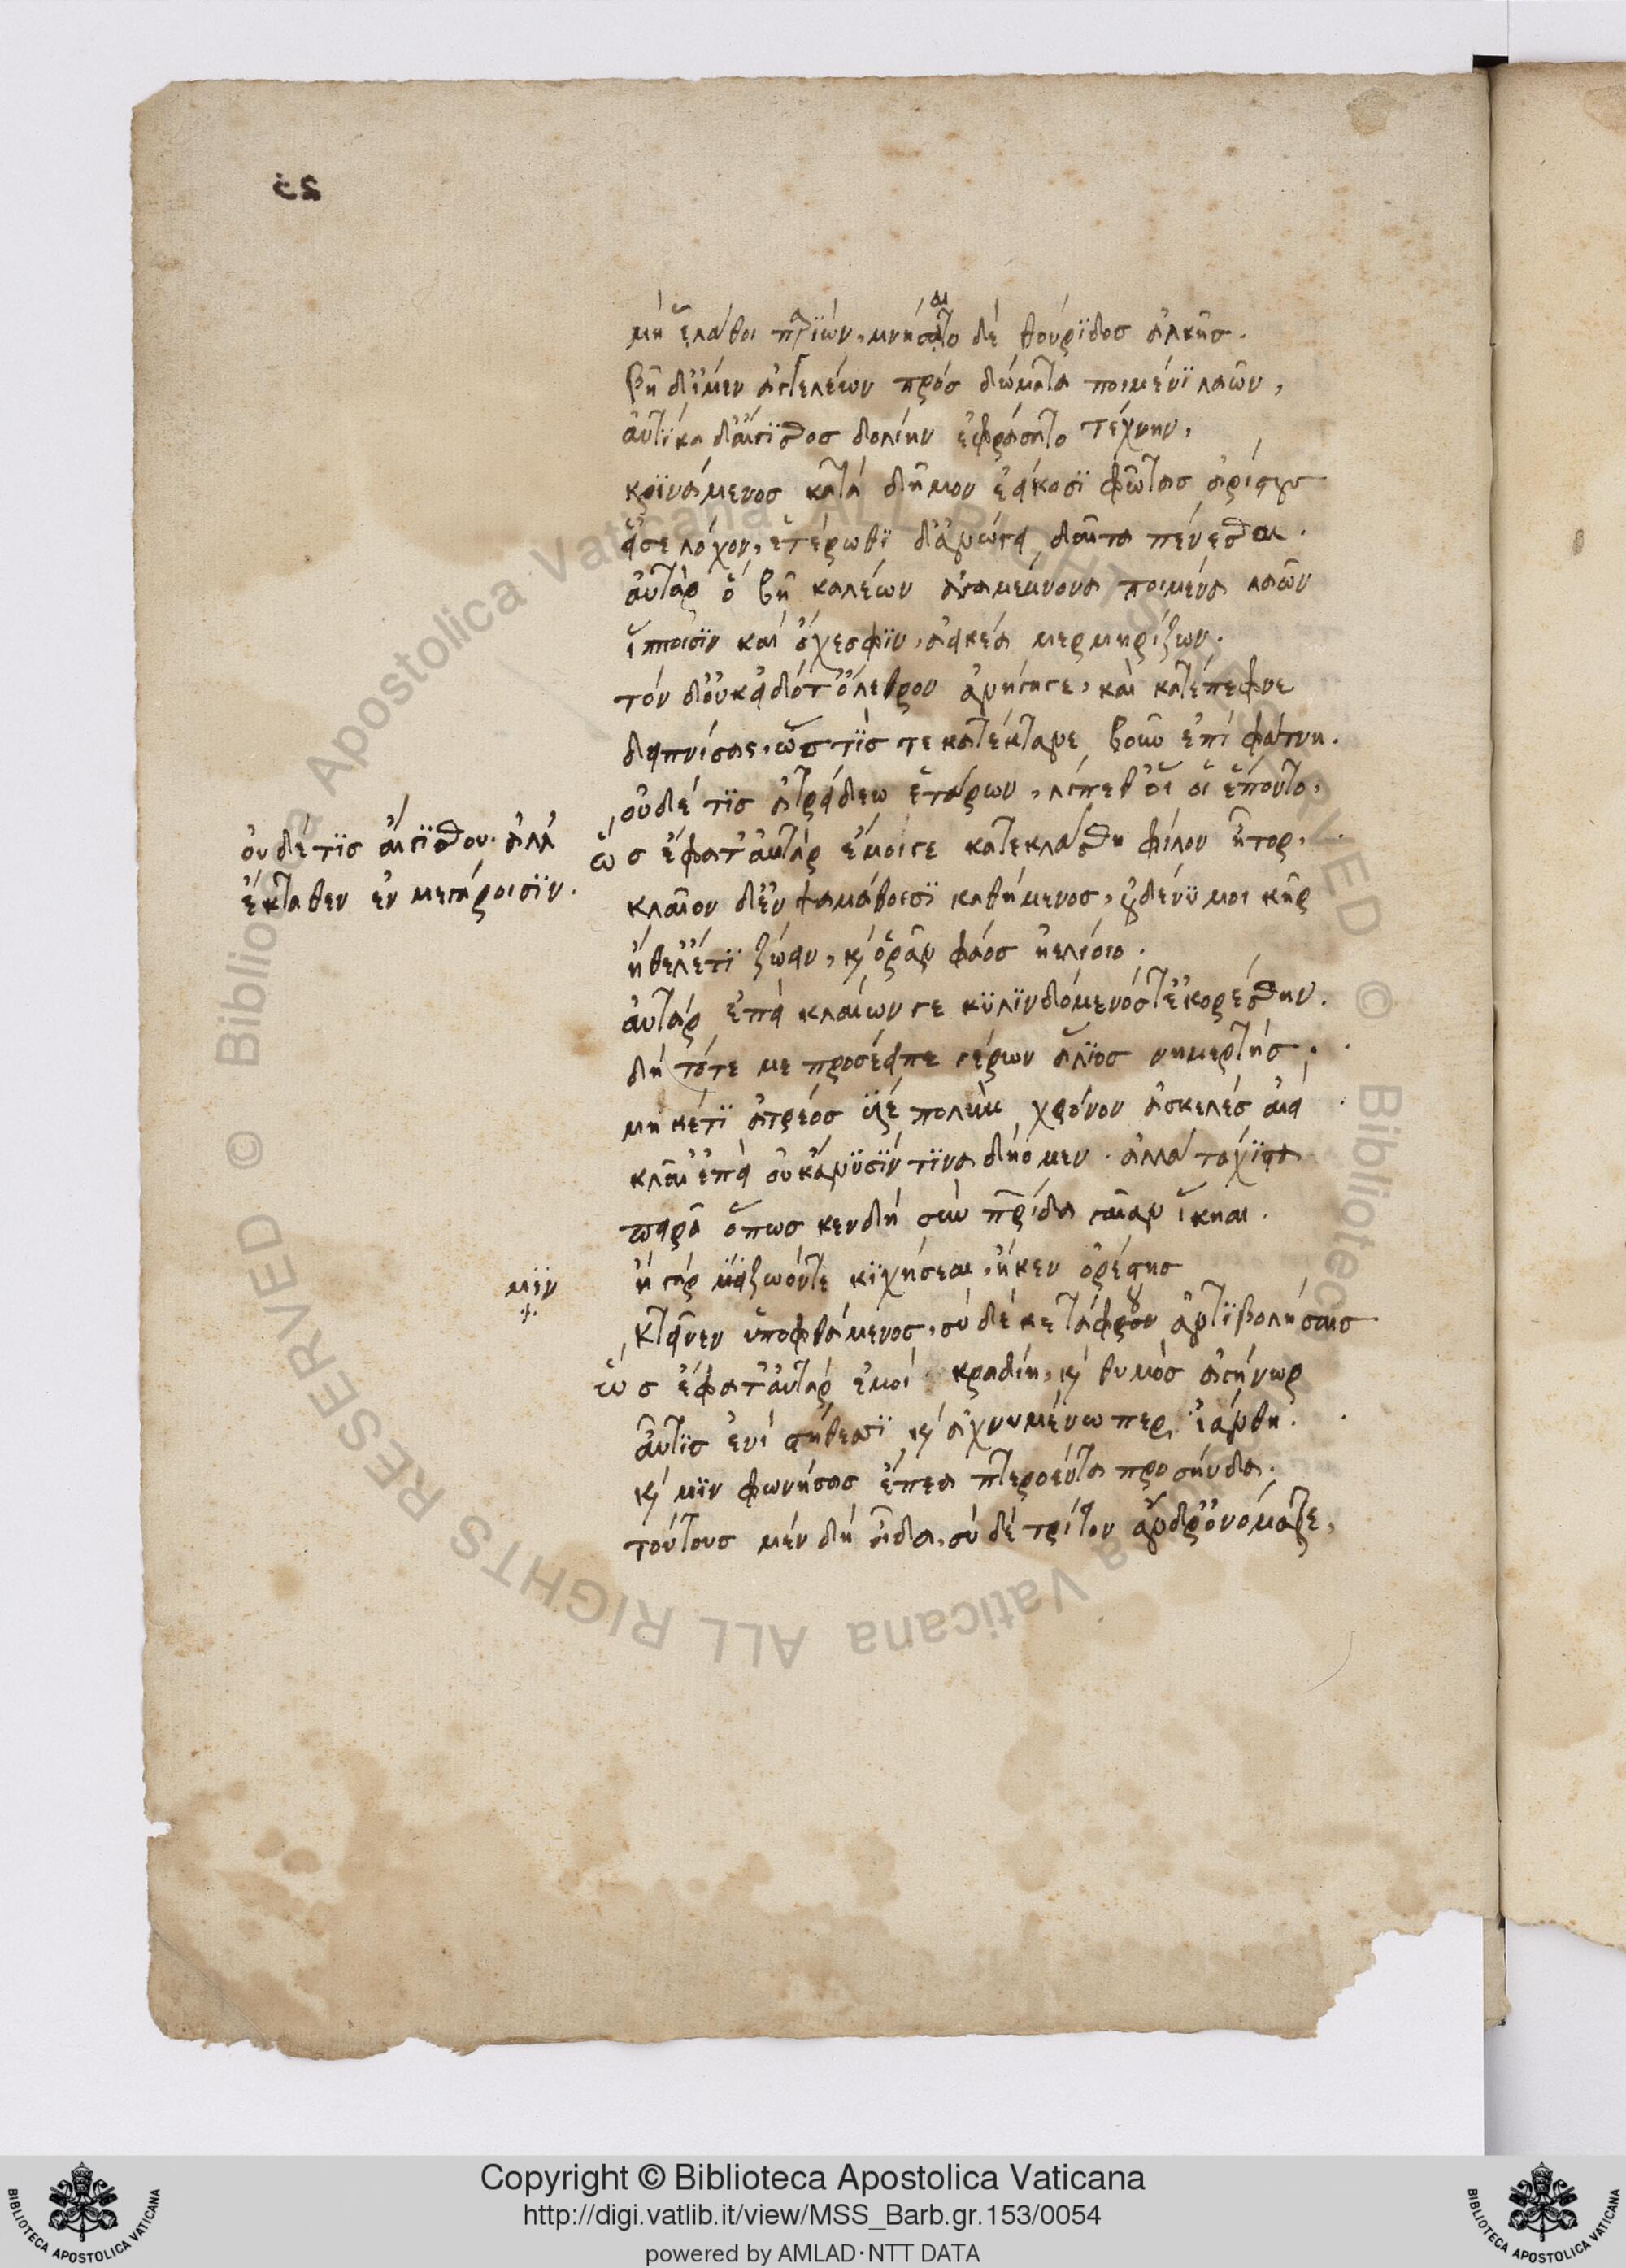 25
μή ἑ λάθοι παριών, μνήσαιτο δὲ θούριδος ἀλκῆς.
βῆ δ' ἴμεν ἀγγελέων πρὸς δώματα ποιμένι λαῶν,
αὐτίκα δ' αἴγισθος δολίην ἐφράσατο τέχνην,
κρινάμενος κατὰ δῆμον ἐείκοσι φῶτας ἀρίστους
εἷσε λόχον, ἑτέρωθι δ' ἀνώγει δαῖτα πένεσθαι.
αὐτὰρ ὃ βῆ καλέων ἀγαμέμνονα ποιμένα λαῶν
ἵπποισιν καὶ ὄχεσφιν, ἀεικέα μερμηρίζων.
τὸν δ' οὐκ εἰδότ' ὄλεθρον ἀνήγαγε, καὶ κατέπεφνε
δειπνίσας, ὥς τίς τε κατέκτανε βοῦν ἐπὶ φάτνῃ.
οὐδέ τις ἀτρείδεω ἑτάρων, λίπεθ' οἵ οἱ ἕποντο,
οὐδέ τις αἰγίσθου. ἀλλ'
ἔκταθεν ἐν μεγάροισιν.
ὣς ἔφατ' αὐτὰρ ἔμοιγε κατεκλάσθη φίλον ἦτορ.
κλαῖον δ' ἐν ψαμάθοισι καθήμενος, οὐδέ νύ μοι κῆρ
ἤθελ' ἔτι ζώειν, καὶ ὁρᾶν φάος ἠελίοιο.
αὐτὰρ ἐπεὶ κλαίων γε κυλινδόμενός τ' ἐκορέσθην.
δὴ τότε με προσέειπε γέρων ἅλιος νημερτής.
μηκέτι ἀτρέος υἱὲ πολὺν χρόνον ἀσκελὲς αἰεί
κλαῖ' ἐπεὶ οὐκ ἄνυσίν τινα δήομεν. ἀλλὰ τάχιστα
πείρα ὅπως κεν δὴ σὴν πατρίδα γαῖαν ἵκηαι.
μιν
ἢ γάρ μιν ζωόντα κιχήσεαι, ἤ κεν ὀρέστης
κτεῖνεν ὑποφθάμενος, σὺ δέ κε τάφου ἀντιβολήσαις
ὣς ἔφατ' αὐτὰρ ἐμοὶ κραδίη, καὶ θυμὸς ἀγήνωρ
αὖτις ἐνὶ στήθεσι καὶ ἀχνυμένῳ περ ἰάνθη.
καί μιν φωνήσας ἔπεα πτερόεντα προσηύδα.
τούτους μὲν δὴ οἶδα, σὺ δὲ τρίτον ἄνδρ' ὀνόμαζε,
© Biblioteca Apostolica Vaticana ALL RIGHTS RESERVED © Biblioteca Apostolica Vaticana ALL RIGHTS RESERVED
Copyright © Biblioteca Apostolica Vaticana
http://digi.vatlib.it/view/MSS_Barb.gr.153/0054
powered by AMLAD·NTT DATA
BIBLIOTECA APOSTOLICA VATICANA
BIBLIOTECA APOSTOLICA VATICANA